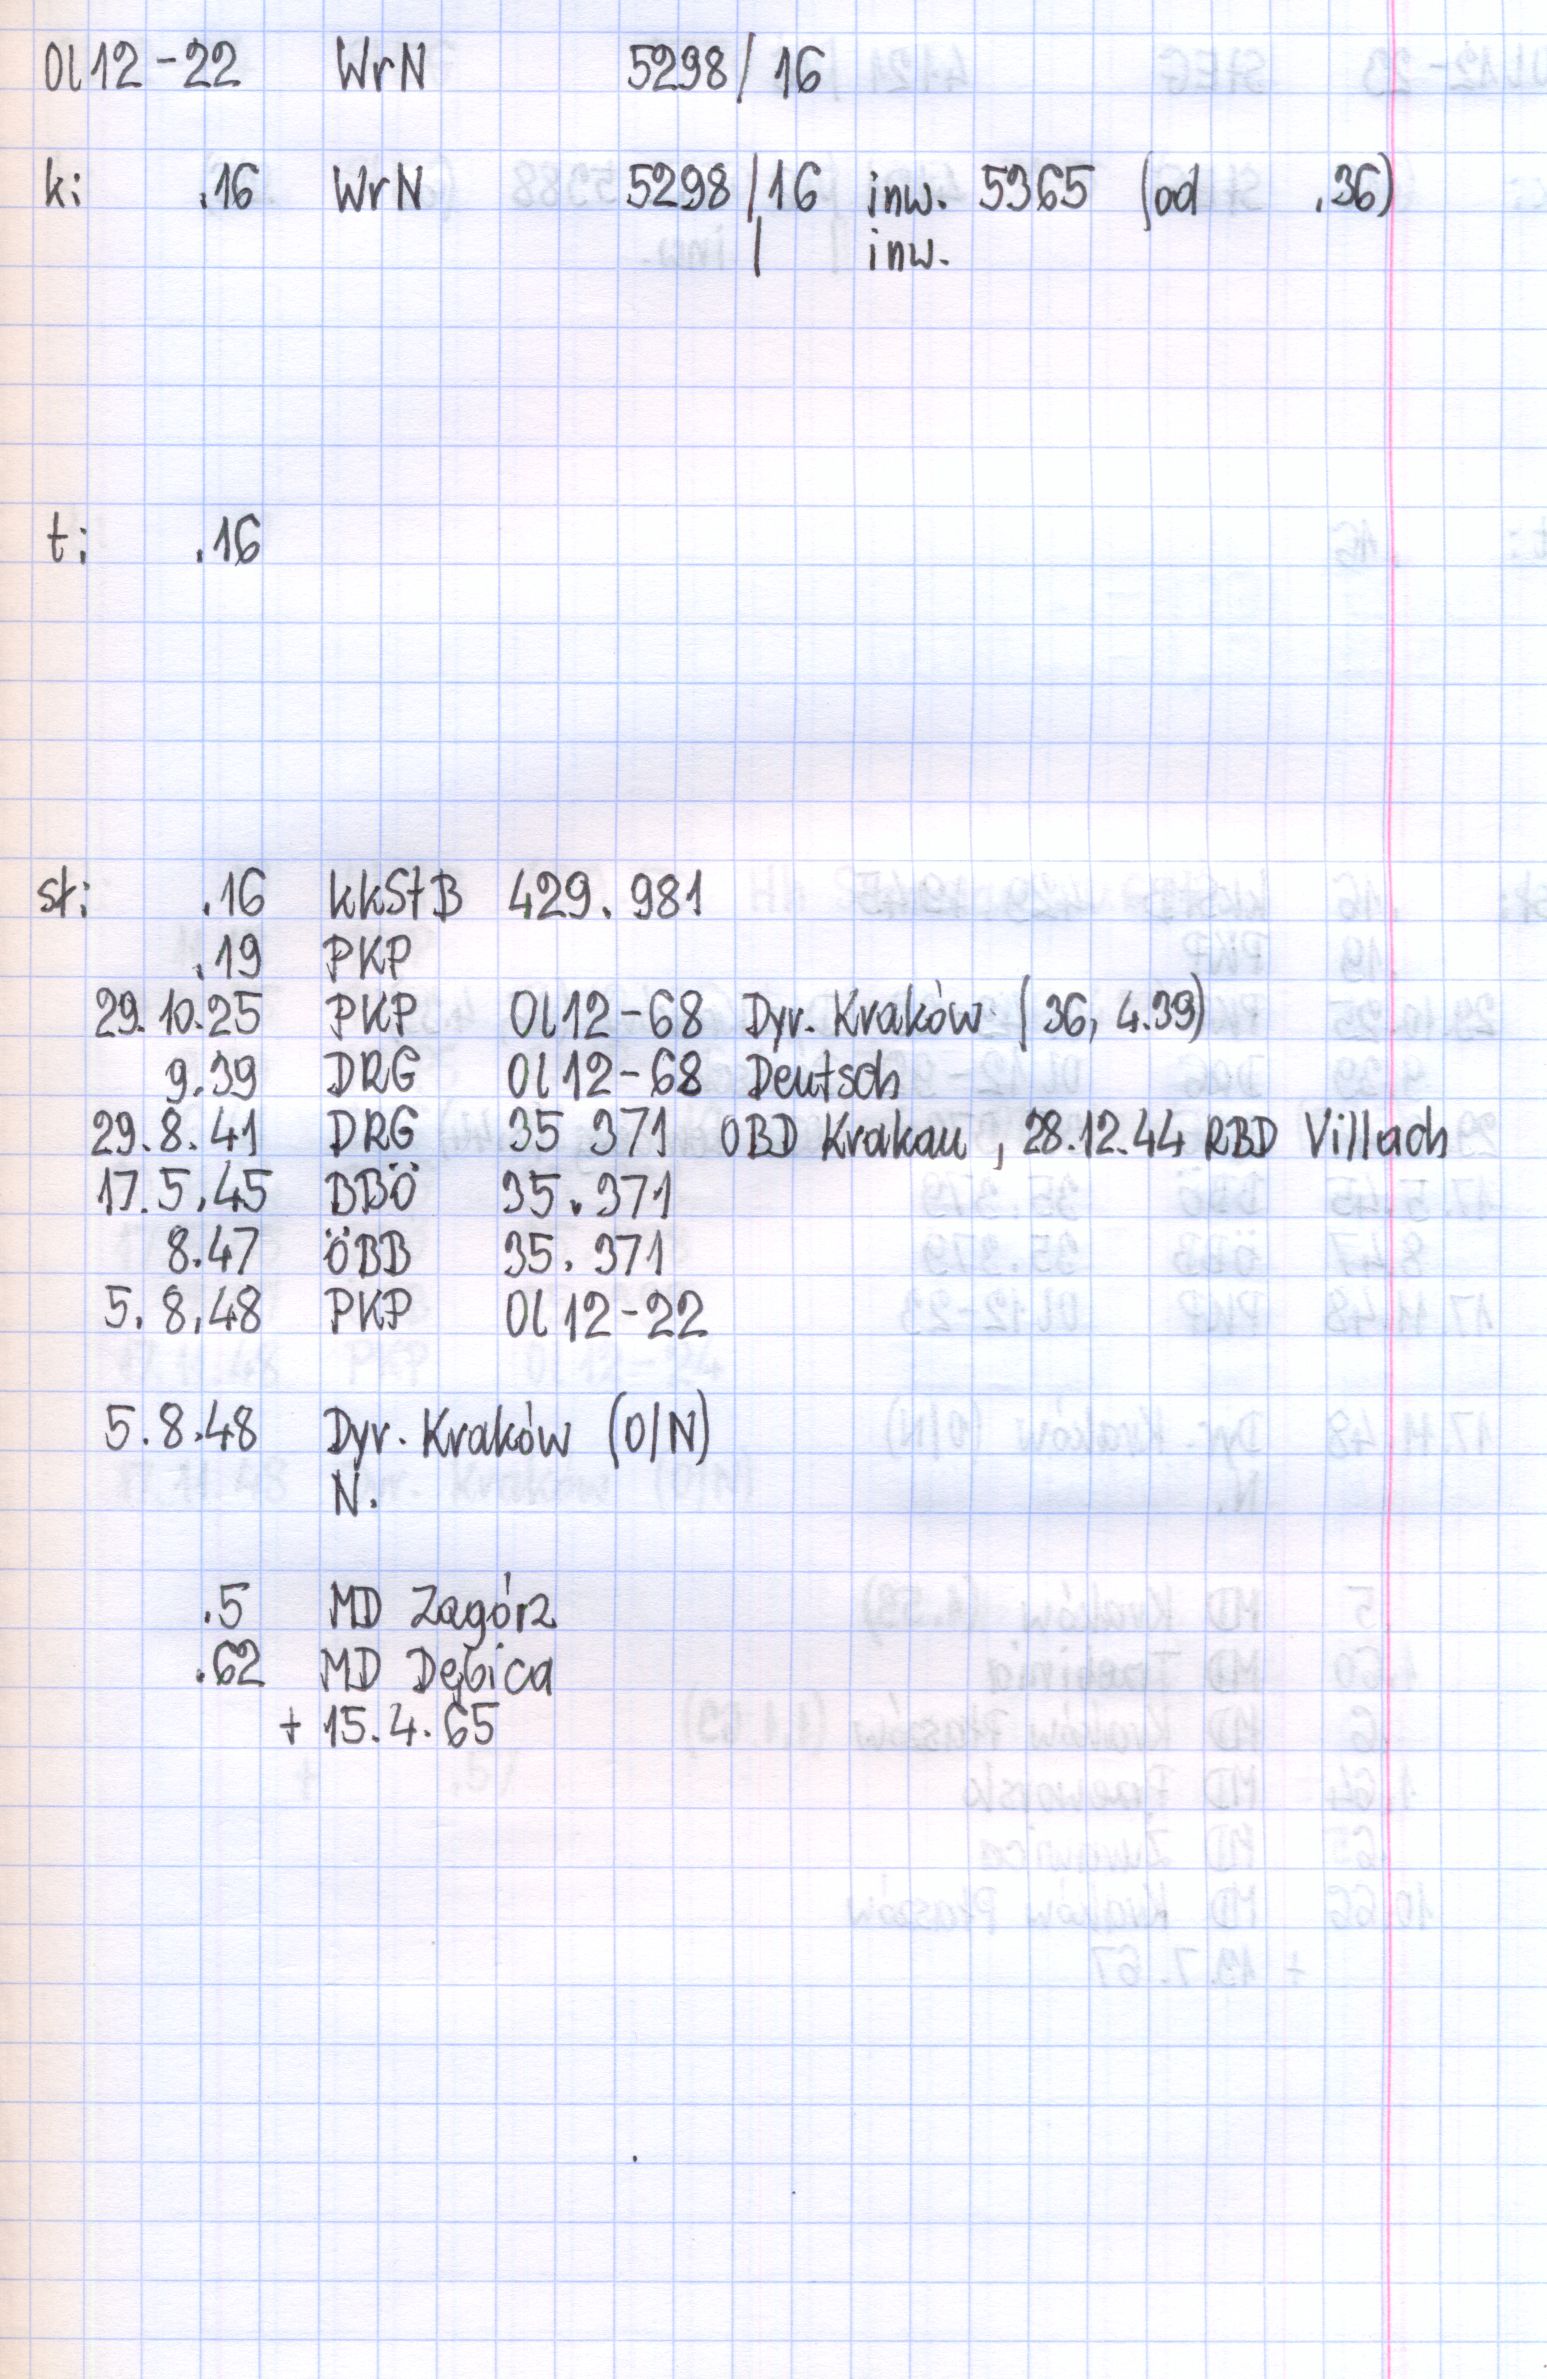 Ol12-22 WrN 5298/16
k: .16 WrN 5298/16 inw. 5365 (od .36)
/ inw.
t: .16
st: .16 kkStB 429.981
.19 PKP
29.10.25 PKP Ol12-68 Dyr. Kraków (36, 4.39)
9.39 DRG Ol12-68 Deutsch
29.8.41 DRG 35 371 OBD Krakau, 28.12.44 RBD Villach
17.5.45 BBÖ 35.371
8.47 ÖBB 35.371
5.8.48 PKP Ol12-22
5.8.48 Dyr. Kraków (O/N)
N.
.5 MD Zagórz
.62 MD Dębica
+ 15.4.65